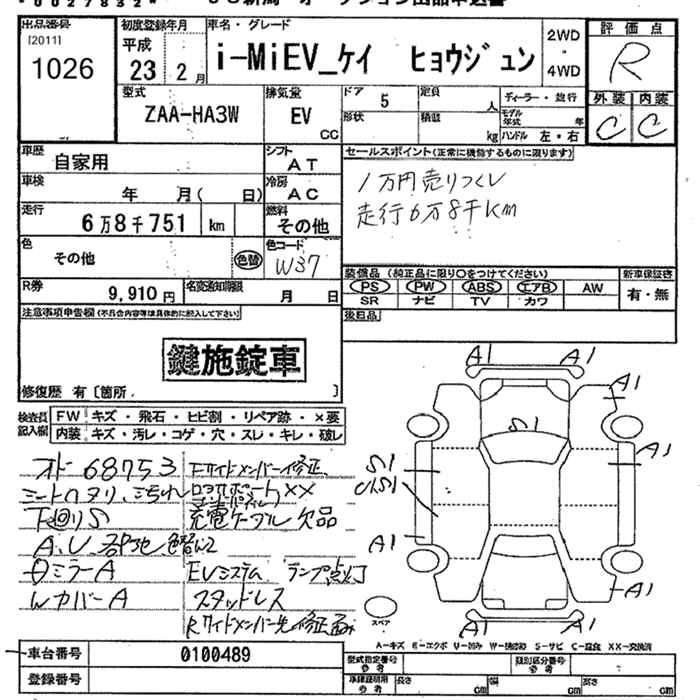 *0027832*
出品番号
[2011]
1026
初度登録年月
平成
23 2月
車名・グレード
i-MiEV_ケイ ヒョウジュン
2WD
・
4WD
評価点
R
外装 内装
C C
型式
ZAA-HA3W
排気量
EV
CC
ドア 5
定員
人
ディーラー・並行
モデル年式 年
形状
積載
kg
ハンドル 左・右
車歴
自家用
シフト
AT
セールスポイント(正常に機能するものに限ります)
1万円売りつくし
走行6万8千Km
車検
年 月( 日)
冷房
AC
走行
6万8千751 km
燃料
その他
色
その他
色替
色コード
W37
装備品(純正品に限り○をつけてください)
新車保証書
PS PW ABS エアB AW
SR ナビ TV カワ
有・無
R券
9,910円
名変通知期限
月 日
後日品
注意事項申告欄(不具合内容等は具体的に記入して下さい)
鍵施錠車
修復歴 有〔箇所 〕
検査員記入欄
FW キズ・飛石・ヒビ割・リペア跡・×要
内装 キズ・汚レ・コゲ・穴・スレ・キレ・破レ
オド 68753
Fサイドメンバー修正
XX
下廻りS
充電ケーブル欠品
ミラーA
EVシステム ランプ点灯
WカバーA
スタッドレス
A1 A1
A1
S1
A1
S1
A1
A1
A1 A1
スペア
A-キズ E-エクボ U-凹み W-補修跡 S-サビ C-腐食 XX-交換済
車台番号
0100489
型式指定番号
参考
類別区分番号
参考
登録番号
車庫証明用
参考
長さ cm 幅 cm 高さ cm